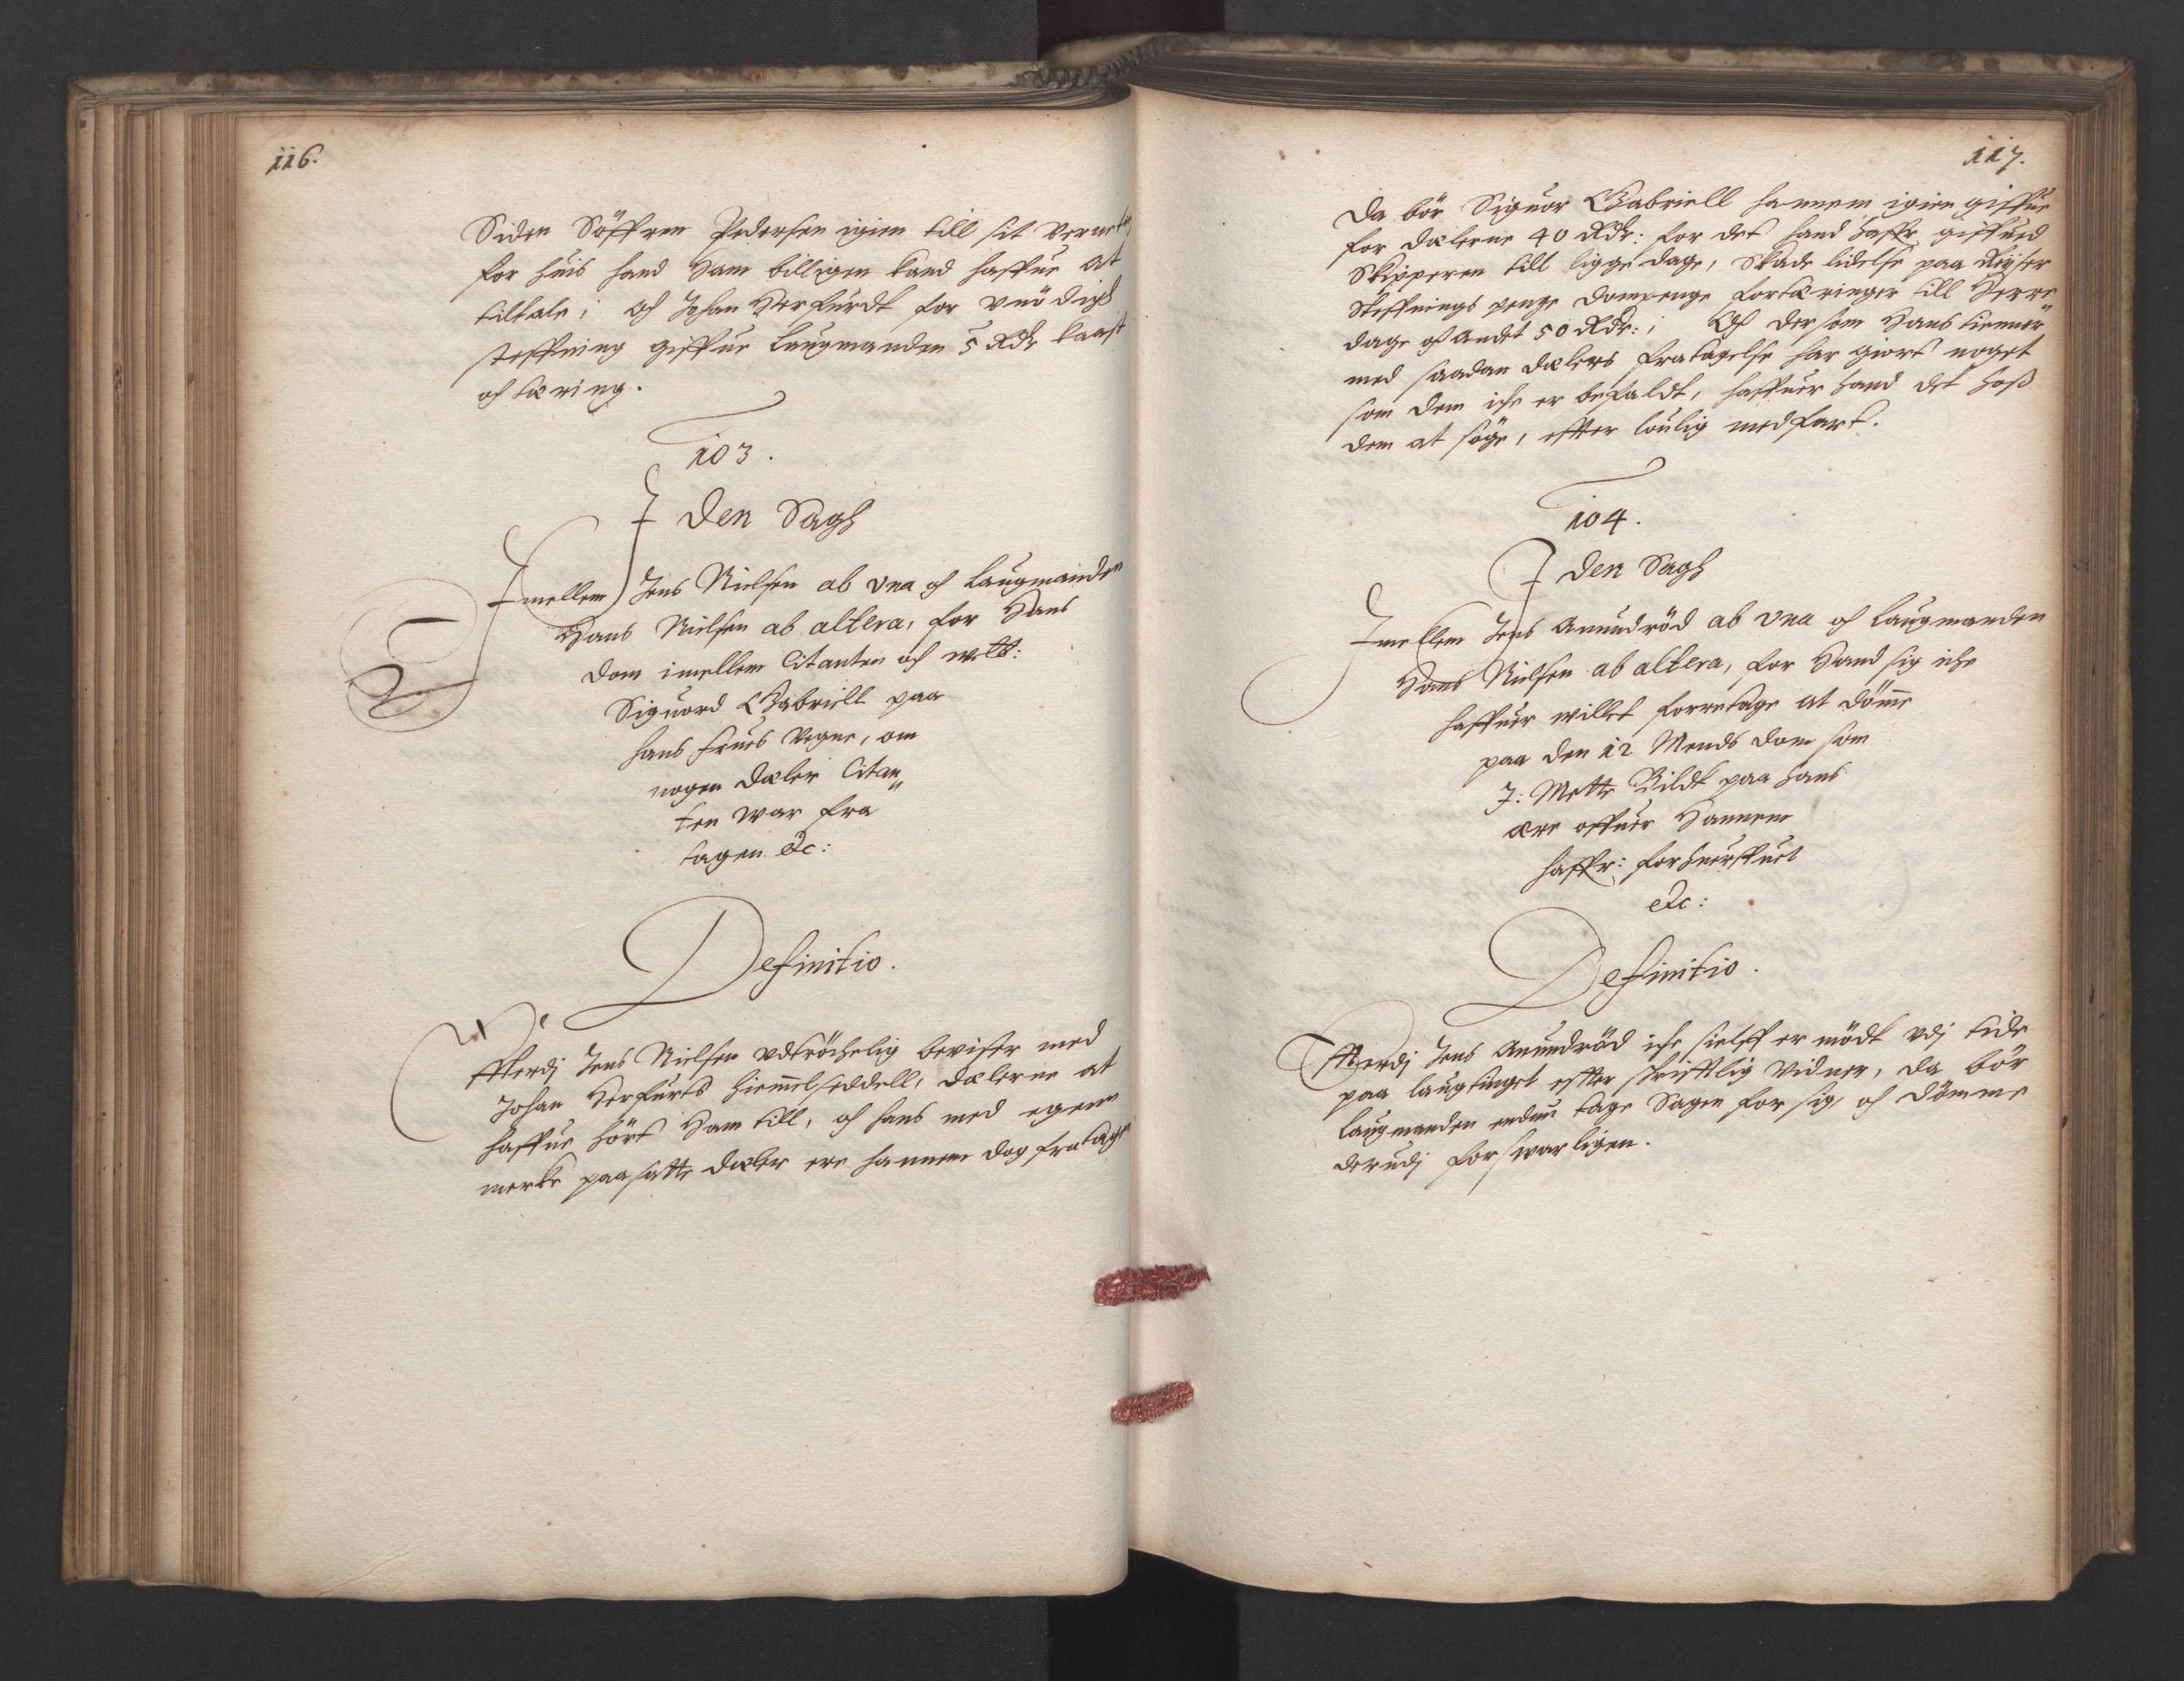 116.
Siden Söffren Pedersen igien till sit Vernetin
for huis hand Ham billigen kand haffue at
tiltale; och Johan Herfurdt for vnödich
steffning giffue Laugmanden 5 Rdr kaast
och tæring.
103.
J den Sagh
Jmellem Jens Nielsen ab vna och Laugmanden
Hans Nielsen ab altera, for Hans
dom imellem Citanten och welb:
Siguord Gabriell paa
hans Frues Vegne, om
nogen Dæler Citan
ten war fra
tagen etc:
Definitio.
Efferdj Jens Nielsen vdtröchelig beviser med
Johan Herfurts hiemmelseddell, Dælerne at
haffue hört Ham till, och hans med egenn
merke paasatte dæler ere hannem dog fratagn
117.
Da bör Siguor Gabriell hannem igien giffue
for Dælerne 40 Rdr: for det hand haffr giffued
Skipperen till ligge dage, Skade lidelse paa Reyser
Steffnings penge Dompenge fortæringer till Herre
dage och andet 50 Rdr:; Och dersom Hans tienner
med saadan dælers fratagelse har giort noget
som dem iche er befaldt, haffuer hand det hoß
dem at söge, effter loulig medfart.
104.
J den Sagh
Jmellem Jens Amundröd ab vna och Laugmanden
Hans Nielsen ab altera, for Hand sig iche
haffuer willet forretage at dömme
paa den 12 Mends dom som
J: Mette Bildt paa hans
ære offuer Hannem
haffr: forhuerffuet
etc:
Definitio.
Efferdj Jens Amundröd iche sielff er mödt vdj tide
paa laugtinget effter skrifftlig Vidner, da bör
Laugmanden endnu tage Sagen for sig, och dömme
derudj forswarligen.